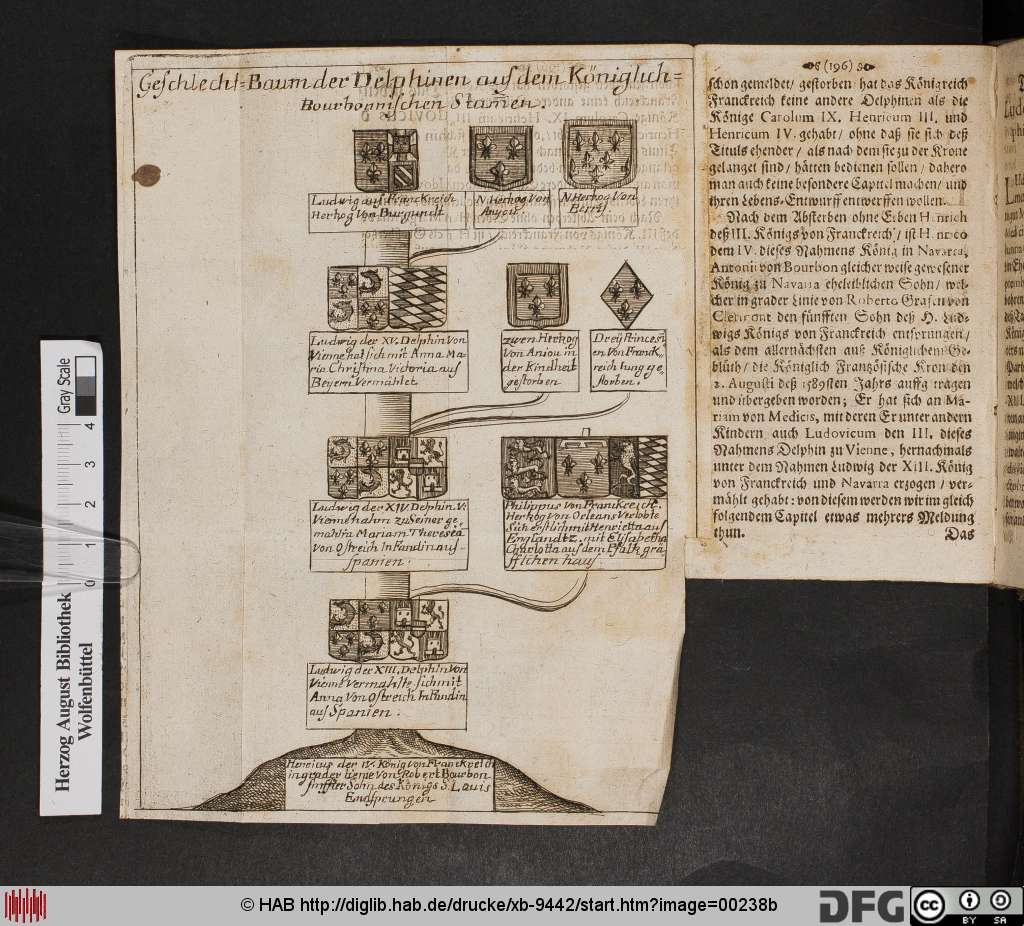 Geschlecht-Baum der Delphinen aus dem Königlich=
Bourbonnischen Stam̄en.
Ludwig aus Franckreich
Hertzog Von Burgundt
N Hertzog Von
Anjou
N Hertzog Von
Berri
Ludwig der XV. Delphin Von
Vienne hat sich mit Anna Ma
ria Christina Victoria aus
Beyern Vermählet
zwen Hertzog
Von Anjou in
der Kindheit
gestorben
Dreij Princesi
en Von Franck
reich Iung ge
storben.
Ludwig der XIV Delphin. V.
Vienne nahm zu Seiner ge
mahlin Mariam Theresea
Von Ostreich Infandin aus
spanien.
Philippus Von Franckreich
Hertzog Von Orleans Verlobte
Sich Erstlich mit Henrietta aus
Englandt mit Elisabetha
Charlotta aus dem Pfältz grä
fflichen haus
Ludwig der XIII. Delphin Von
Vienne Vermahlte sich mit
Anna Von Ostreich Infandin
aus Spanien.
Henricus der IV. König Von Franckreich
in grader Lienie Von Robert Bourbon
fünffter Sohn des Königs S. Louis
Endsprungen
(196)
schon gemeldet/ gestorben hat das Königreich
Franckreich keine andere Delphinen als die
Könige Carolum IX, Henricum III, und
Henricum IV. gehabt/ ohne daß sie sich deß
Tituls ehender/ als nach dem sie zu der Krone
gelanget sind/ hätten bedienen sollen/ dahero
man auch keine besondere Capittel machen/ und
ihren Lebens-Entwurff entwerffen wollen.
Nach dem Absterben ohne Erben Henrich
deß III. Königs von Franckreich/ ist Henrico
dem IV. dieses Nahmens König in Navarra,
Antonii von Bourbon gleicher weise gewesener
König zu Navarra eheleiblichen Sohn/ wel-
cher in grader Linie von Roberto Grafen von
Clermont den fünfften Sohn deß H. Lud-
wigs Königs von Franckreich entsprungen/
als dem allernächsten auß Königlichem Ge-
blüth/ die Königlich Französische Kron den
2. Augusti deß 1589sten Jahrs auffgetragen
und übergeben worden; Er hat sich an Ma-
riam von Medicis, mit deren Er unter andern
Kindern auch Ludovicum den III, dieses
Nahmens Delphin zu Vienne, hernachmals
unter dem Nahmen Ludwig der XIII. König
von Franckreich und Navarra erzogen/ ver-
mählt gehabt: von diesem werden wir im gleich
folgendem Capitel etwas mehrers Meldung
thun.
Das
Herzog August Bibliothek
Wolfenbüttel
Gray Scale
0 1 2 3 4
© HAB http://diglib.hab.de/drucke/xb-9442/start.htm?image=00238b
DFG
cc
BY SA